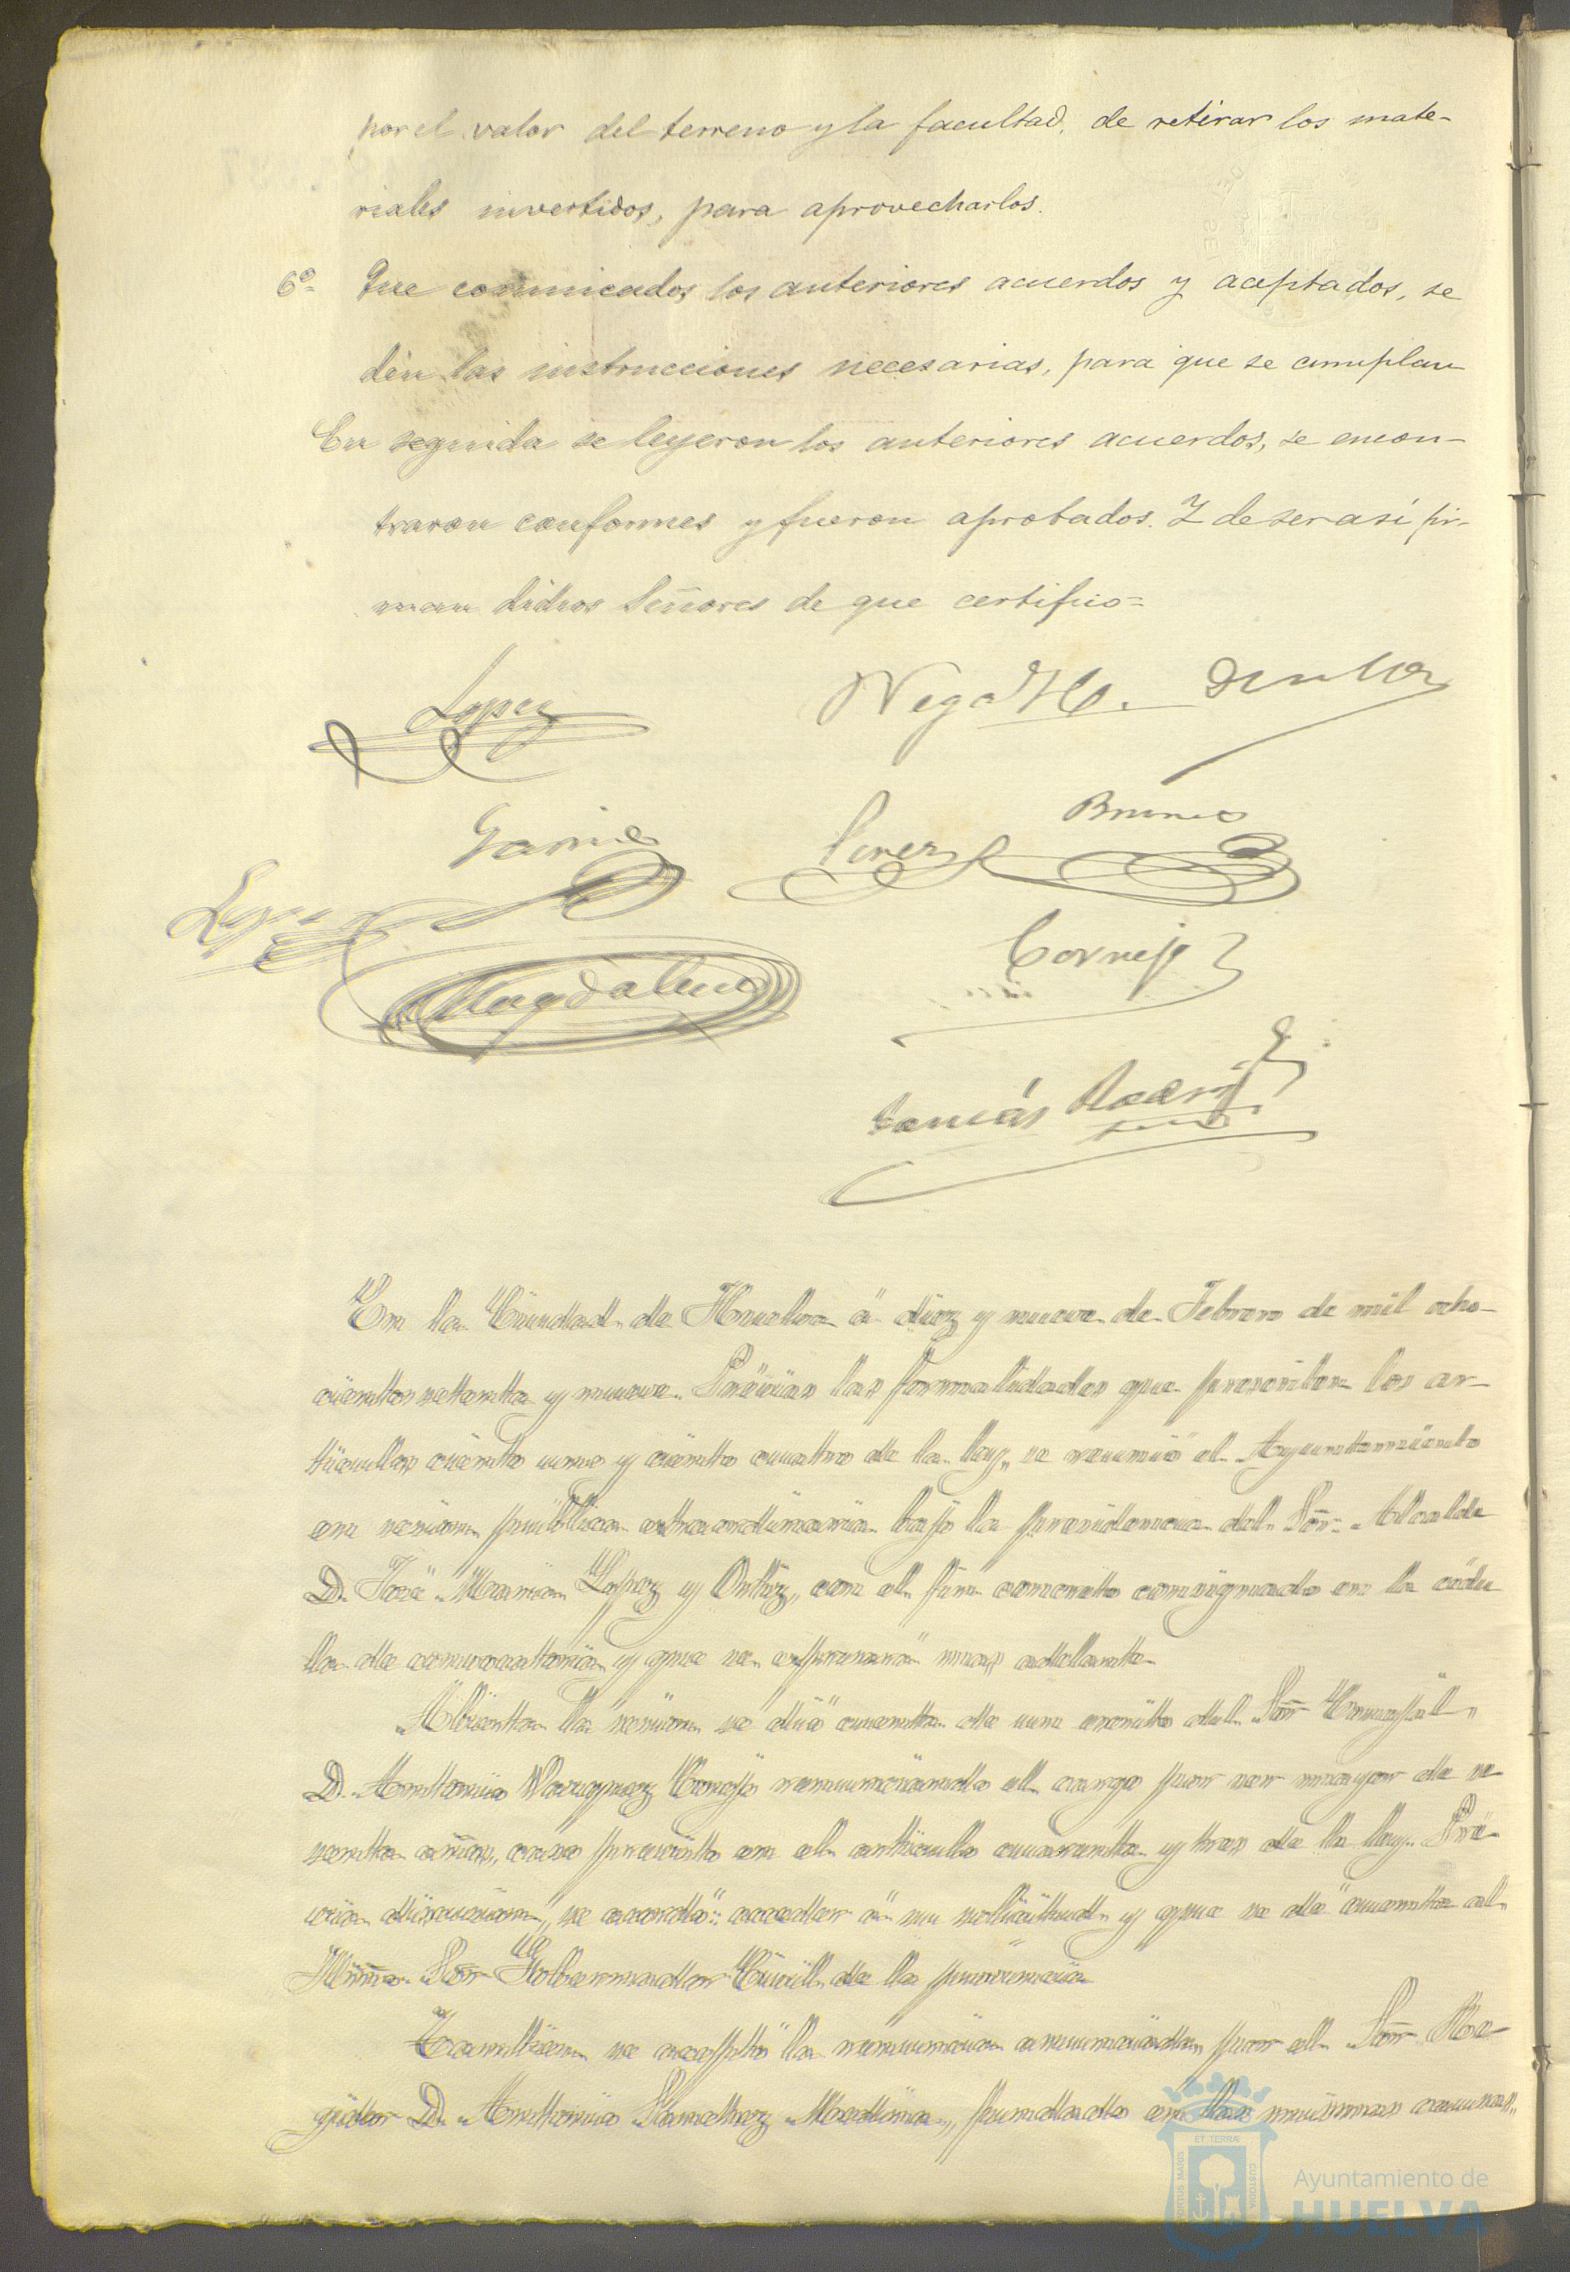 por el valor del terreno y la facultad, de retirar los mate-
riales invertidos, para aprovecharlos.
6º Que comunicados los anteriores acuerdos y aceptados, se
dén las instrucciones necesarias, para que se cumplan
En seguida se leyeron los anteriores acuerdos, se encon-
traron conformes y fueron aprobados. Y de ser así fir-
man dichos Señores de que certifico=
Lopez
Vega
Garcia
Perez
Bruno
Lopez
Cornejo
Magdalena
Tomás Rodrig
En la Ciudad de Huelva á diez y nueve de Febrero de mil ocho-
cientos setenta y nueve. Prévias las formalidades que prescriben los ar-
tículos ciento uno y ciento cuatro de la ley, se reunió el Ayuntamiento
en sesion pública extraordinaria bajo la presidencia del Sor. Alcalde
D. José Maria Lopez y Ortiz, con el fin concreto consignado en la cédu
la de convocatoria y que se espresará mas adelante
Abierta la sesion se dió cuenta de un escrito del Sor Concejal
D. Antonio Vazquez Cornejo renunciando el cargo por ser mayor de se
senta años, caso previsto en el artículo cuarenta y tres de la ley. Pré-
via discusion, se acordó: acceder á su solicitud y que se dé cuenta al
Iltmo. Sor Gobernador Civil de la provincia
Tambien se aceptó la renuncia anunciada por el Sor Re-
gidor D. Antonio Sanchez Medina, fundado en las mismas causas
ET TERRÆ
PORTUS MARIS
CUSTODIA
Ayuntamiento de
HUELVA